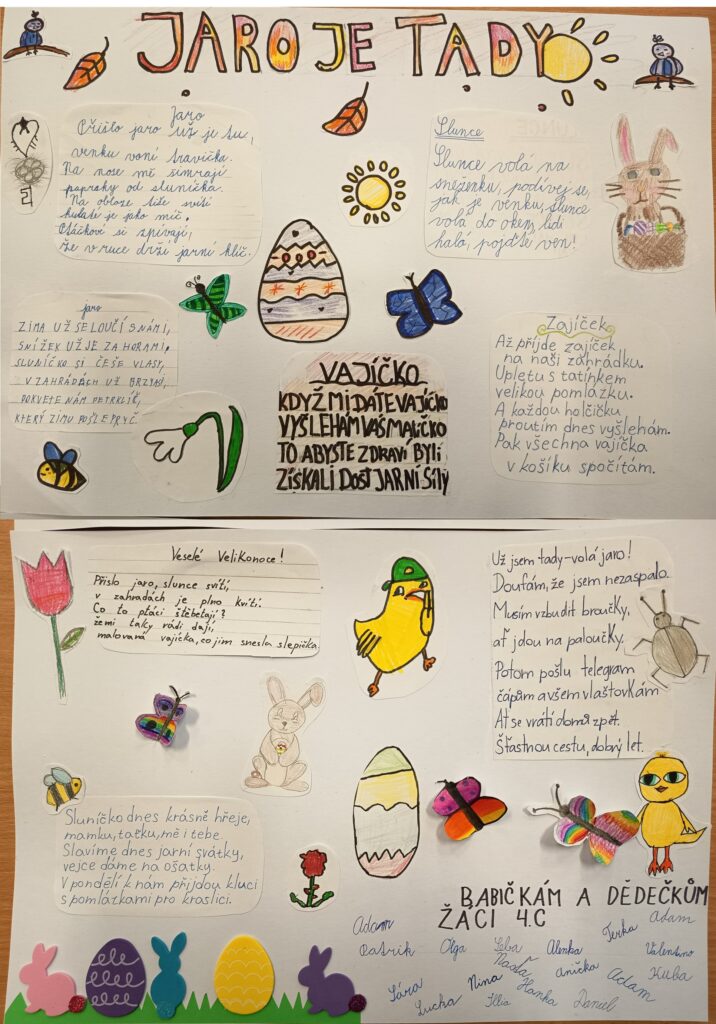 JARO JE TADY
Jaro
Přišlo jaro už je tu,
venku voní travička.
Na nose mě šimrají
paprsky od sluníčka.
Na obloze tiše svítí
kulaté je jako míč.
Ptáčkové si zpívají,
že v ruce drží jarní klíč.
Slunce
Slunce volá na
sněženku, podívej se,
jak je venku, slunce
volá do oken, lidi
haló, pojďte ven!
jaro
ZIMA UŽ SE LOUČÍ S NÁMI,
SNÍŽEK UŽ JE ZA HORAMI.
SLUNÍČKO SI ČEŠE VLASY,
V ZAHRÁDÁCH UŽ BRZY
POKVETE NÁM PETRKLÍČ,
KTERÝ ZIMU POŠLE PRYČ.
VAJÍČKO
KDYŽ MI DÁTE VAJÍČKO
VYŠLEHÁM VÁS MALIČKO
TO ABYSTE ZDRAVÍ BYLI
ZÍSKALI DOST JARNÍ SÍLY
Zajíček
Až přijde zajíček
na naši zahrádku.
Upletu s tatínkem
velikou pomlázku.
A každou holčičku
proutím dnes vyšlehám.
Pak všechna vajíčka
v košíku spočítám.
Veselé Velikonoce!
Přišlo jaro, slunce svítí,
v zahradách je plno kvítí.
Co to ptáci štěbetají?
žemi taky rádi dají,
malovaná vajíčka, co jim snesla slepička.
Už jsem tady-volá jaro!
Doufám, že jsem nezaspalo.
Musím vzbudit broučky,
ať jdou na paloučky.
Potom pošlu telegram
čápům a všem vlaštovkám
Ať se vrátí domů zpět.
Šťastnou cestu, dobrý let.
Sluníčko dnes krásně hřeje,
mamku, taťku, mě i tebe.
Slavíme dnes jarní svátky,
vejce dáme na ošatky.
V pondělí k nám přijdou kluci
s pomlázkami pro kraslici.
BABIČKÁM A DĚDEČKŮM
ŽÁCI 4.C
Adam
Terka
Adam
Patrik
Olga
Seba
Alenka
Valentino
Naďa
Anička
Kuba
Sára
Nina
Hanka
Adam
Lucka
Illia
Daniel